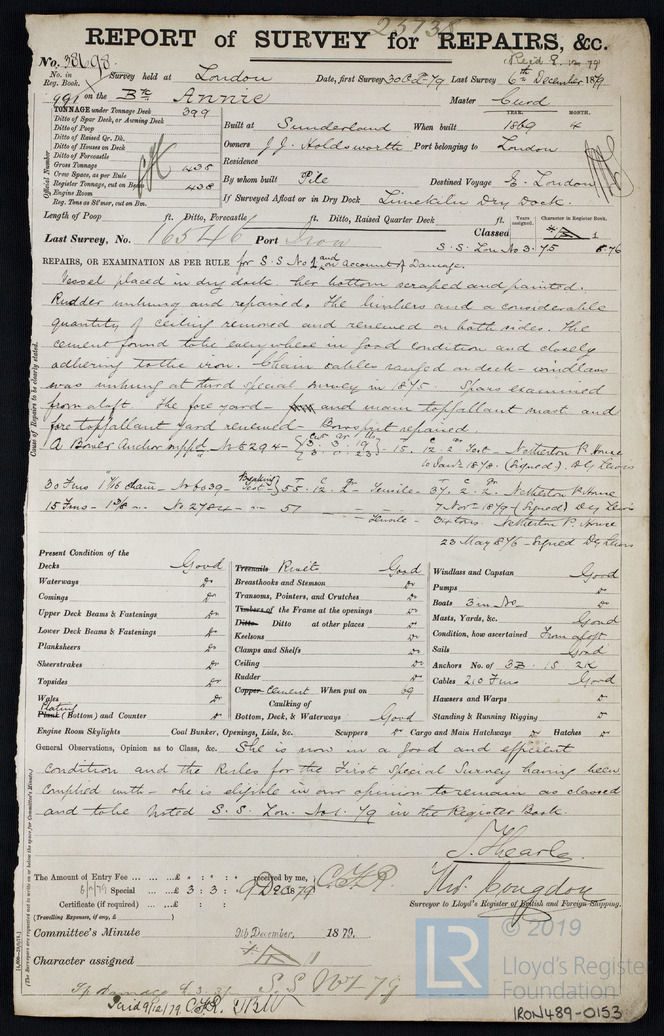 REPORT of SURVEY for REPAIRS, &c.
No. 38698
No. in Reg. Book. Survey held at London Date, first Survey 30 Oct 79 Last Survey 6th December 1879
991 on the Bk Annie Master Curd
TONNAGE under Tonnage Deck 399
Ditto of Spar Deck, or Awning Deck
Ditto of Poop
Ditto of Raised Qr. Dk.
Ditto of Houses on Deck
Ditto of Forecastle
Gross Tonnage 438
Crew Space, as per Rule
Register Tonnage, cut on Beam 438
Engine Room
Reg. Tons as St'mr, cut on Bm.
Official Number
YEAR. MONTH.
Built at Sunderland When built 1869 4
Owners J. J. Holdsworth Port belonging to London
Residence
By whom built Pile Destined Voyage E. London
If Surveyed Afloat or in Dry Dock Limekiln Dry Dock.
Length of Poop ft. Ditto, Forecastle ft. Ditto, Raised Quarter Deck ft.
Years assigned. Character in Register Book.
Last Survey, No. 16546 Port Iron Classed
S.S. Lon No 3. 75 8.76
REPAIRS, OR EXAMINATION AS PER RULE for S.S No 1 and on account of Damage.
Cause of Repairs to be clearly stated.
Vessel placed in dry dock. her bottom scraped and painted.
Rudder unhung and repaired. The limbers and a considerable
quantity of ceiling removed and renewed on both sides. The
cement found to be everywhere in good condition and closely
adhering to the iron. Chain cables ranged on deck - windlass
was unhung at third special survey in 1875. Spars examined
from aloft. The fore yard - and main topgallant mast and
fore topgallant yard renewed - Bowsprit repaired.
A Bower Anchor suppd No 8294 - 15. 12. 2 Test - Netherton P. House
(Signed)
30 Fms 1 11/16 chain - No 6039 - Breaking Test 55. 12. 2 - Tensile - 37. 2. 2. Netherton P. House
15 Fms - No 2784 - 51 7 Nov 1879 (Signed)
Tensile - Netherton P. House
23 May Signed
Present Condition of the
Decks Good
Waterways Do
Comings Do
Upper Deck Beams & Fastenings Do
Lower Deck Beams & Fastenings Do
Planksheers Do
Sheerstrakes Do
Topsides Do
Wales Do
Plating Plank (Bottom) and Counter Do
Treenails Rivets Good
Breasthooks and Stemson Do
Transoms, Pointers, and Crutches Do
Timbers of the Frame at the openings Do
Ditto Ditto at other places Do
Keelsons Do
Clamps and Shelfs Do
Ceiling Do
Rudder Do
Copper Cement When put on 69
Caulking of
Bottom, Deck, & Waterways Good
Windlass and Capstan Good
Pumps Do
Boats 3 in No. Do
Masts, Yards, &c. Good
Condition, how ascertained From aloft
Sails Good
Anchors No. of 3B. 1S. 2K
Cables 210 Fms Good
Hawsers and Warps Do
Standing & Running Rigging Do
Engine Room Skylights Coal Bunker, Openings, Lids, &c. Scuppers Do Cargo and Main Hatchways Do Hatches Do
General Observations, Opinion as to Class, &c. She is now in a good and efficient
condition and the Rules for the First Special Survey having been
complied with - she is eligible in our opinion to remain as classed
and to be noted S.S. Lon. No 1. 79 in the Register Book.
The Amount of Entry Fee ... ...£ : : received by me,
Special ... ...£ 3 : 3 : 9 Dec 1879
Certificate (if required) ... ...£ : :
(Travelling Expenses, if any, £ )
Thos. Congdon
Surveyor to Lloyd's Register of British and Foreign Shipping.
Committee's Minute 9th December, 1879.
Character assigned
© 2019
LR
Lloyd's Register
Foundation
IRON489-0153